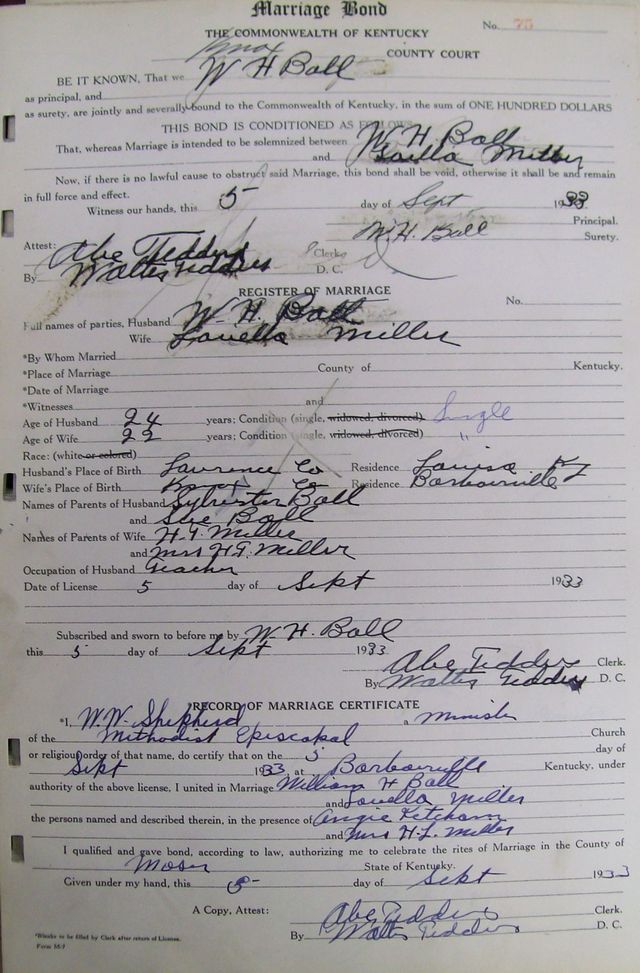 Marriage Bond
No. 75
THE COMMONWEALTH OF KENTUCKY
Knox COUNTY COURT
BE IT KNOWN, That we W H Ball
as principal, and
as surety, are jointly and severally bound to the Commonwealth of Kentucky, in the sum of ONE HUNDRED DOLLARS
THIS BOND IS CONDITIONED AS FOLLOWS
That, whereas Marriage is intended to be solemnized between W. H. Ball
and Louella Miller
Now, if there is no lawful cause to obstruct said Marriage, this bond shall be void, otherwise it shall be and remain
in full force and effect.
Witness our hands, this 5 day of Sept 1933
Principal.
W. H. Ball Surety.
Attest:
Abe Tedders Clerk
By Walter Tedders D. C.
REGISTER OF MARRIAGE
No.
Full names of parties, Husband W. H. Ball
Wife Louella Miller
*By Whom Married
*Place of Marriage County of Kentucky.
*Date of Marriage
*Witnesses and
Age of Husband 24 years; Condition (single, widowed, divorced) Single
Age of Wife 22 years; Condition (single, widowed, divorced) "
Race: (white or colored)
Husband's Place of Birth Lawrence Co Residence Louisa Ky
Wife's Place of Birth Knox Co Residence Barbourville
Names of Parents of Husband Sylvester Ball
and Sue Ball
Names of Parents of Wife H. G. Miller
and Mrs H G. Miller
Occupation of Husband Teacher
Date of License 5 day of Sept 1933
Subscribed and sworn to before me by W. H. Ball
this 5 day of Sept 1933
Abe Tedders Clerk.
By Walter Tedders D. C.
RECORD OF MARRIAGE CERTIFICATE
*I, W.W. Shepherd a Minister
of the Methodist Episcopal Church
or religious order of that name, do certify that on the 5 day of
Sept 1933 at Barbourville Kentucky, under
authority of the above license, I united in Marriage William H Ball
and Louella Miller
the persons named and described therein, in the presence of Angie Ketcham
and Mrs H. L. Miller
I qualified and gave bond, according to law, authorizing me to celebrate the rites of Marriage in the County of
State of Kentucky.
Given under my hand, this 5 day of Sept 1933
A Copy, Attest: Abe Tedders Clerk.
By Walter Tedders D. C.
*Blanks to be filled by Clerk after return of License.
Form 56-7